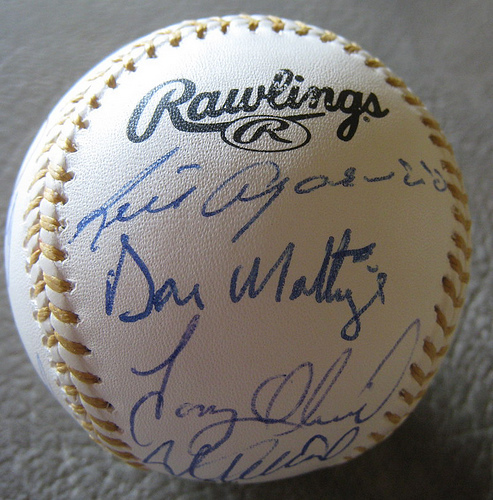 Rawlings
R
Luis Aparicio
Don Mattingly
Tony Oliva